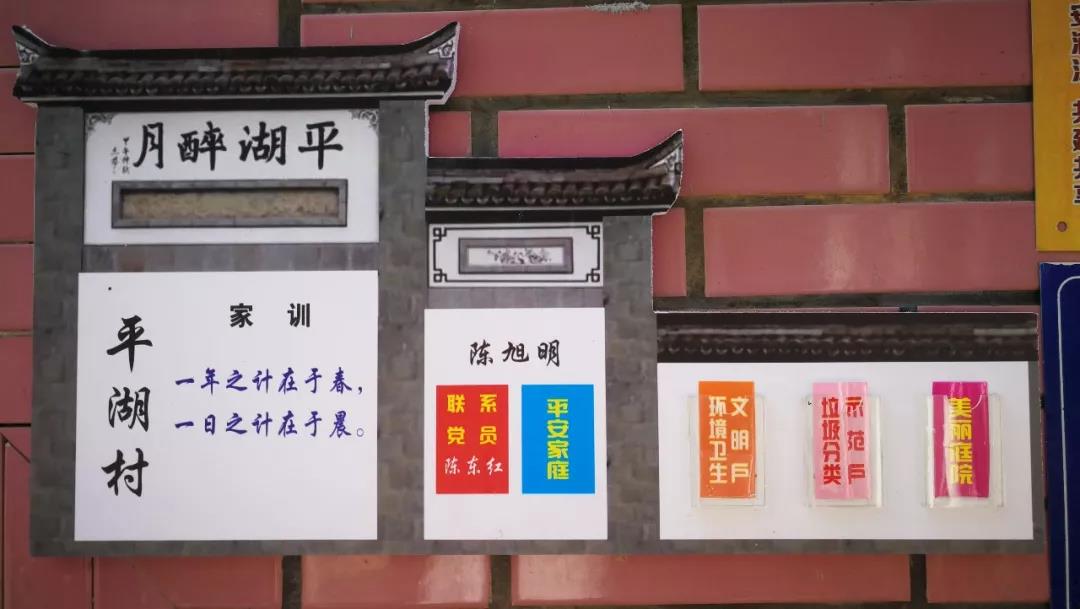 平湖醉月
平湖村
家训
一年之计在于春，
一日之计在于晨。
陈旭明
联系
党员
陈东红
平安家庭
文明户
环境卫生
示范户
垃圾分类
美丽庭院